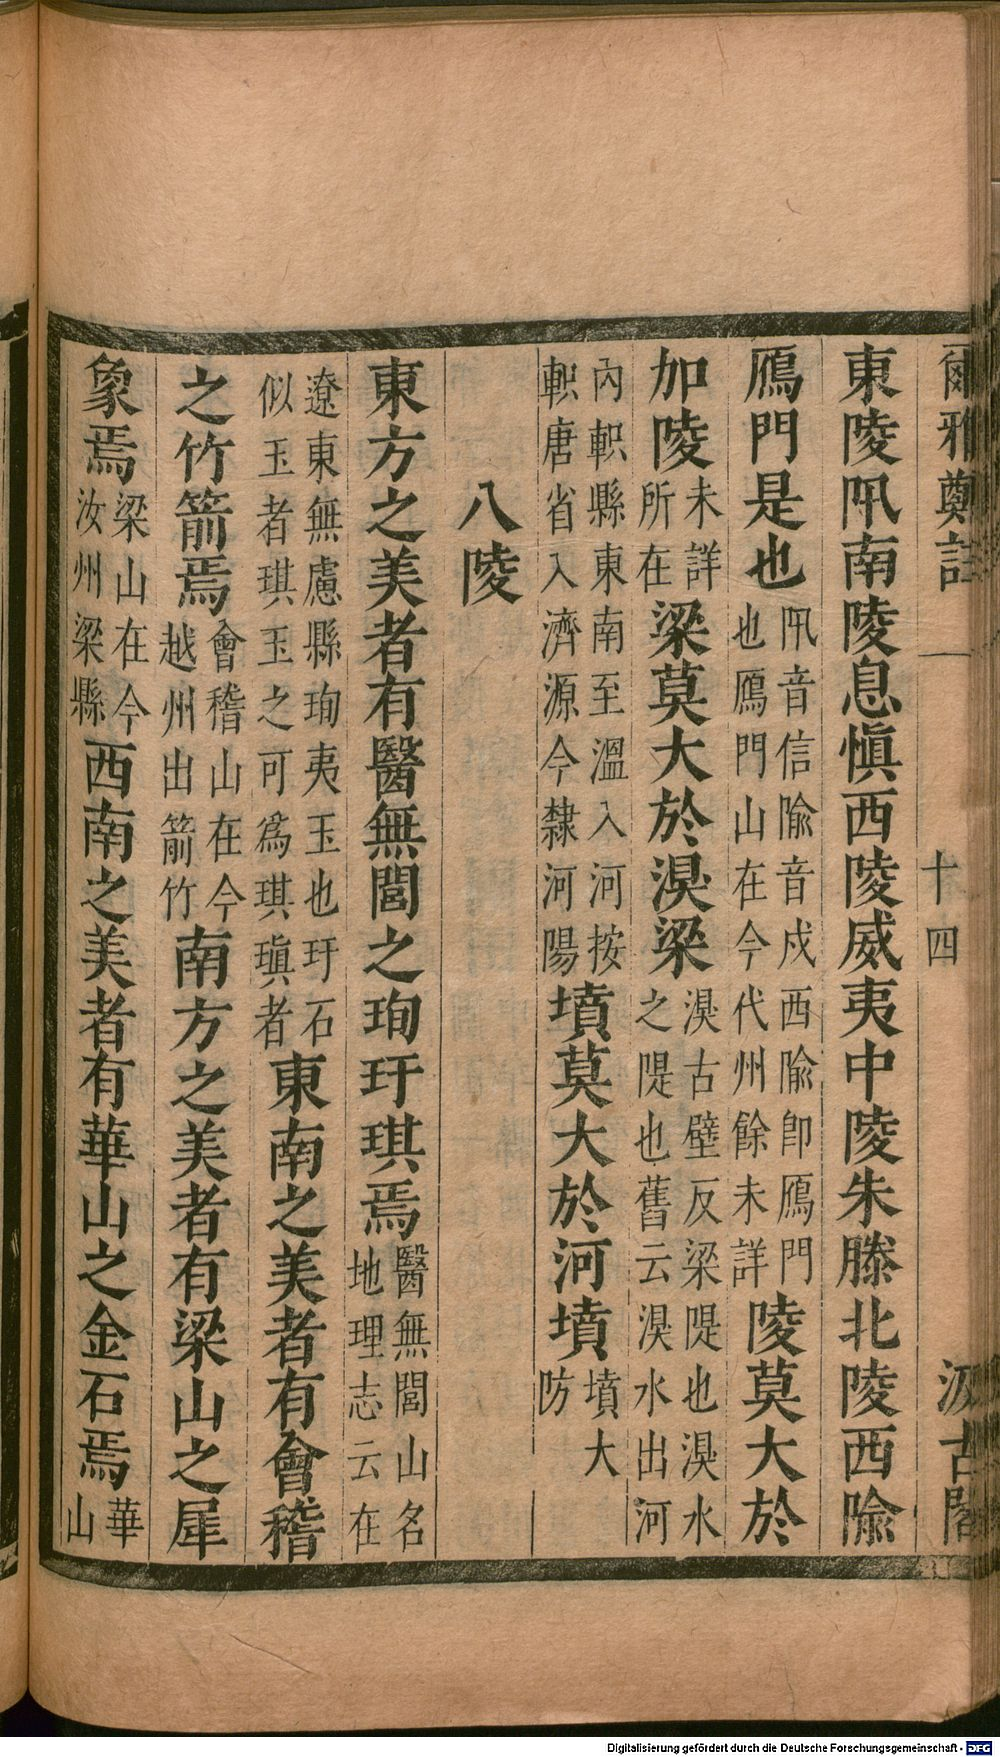 爾雅鄭註 一 十四 汲古閣
東陵阠南陵息愼西陵威夷中陵朱滕北陵西隃
鴈門是也阠音信隃音戍西隃卽鴈門也鴈門山在今代州餘未詳陵莫大於
加陵未詳所在梁莫大於湨梁湨古壁反梁隄也湨水之隄也舊云湨水出河
內軹縣東南至溫入河按軹唐省入濟源今隸河陽墳莫大於河墳墳大防
八陵
東方之美者有醫無閭之珣玗琪焉醫無閭山名地理志云在
遼東無慮縣珣夷玉也玗石似玉者琪玉之可爲琪瑱者東南之美者有會稽
之竹箭焉會稽山在今越州出箭竹南方之美者有梁山之犀
象焉梁山在今汝州梁縣西南之美者有華山之金石焉華山
Digitalisierung gefördert durch die Deutsche Forschungsgemeinschaft - DFG